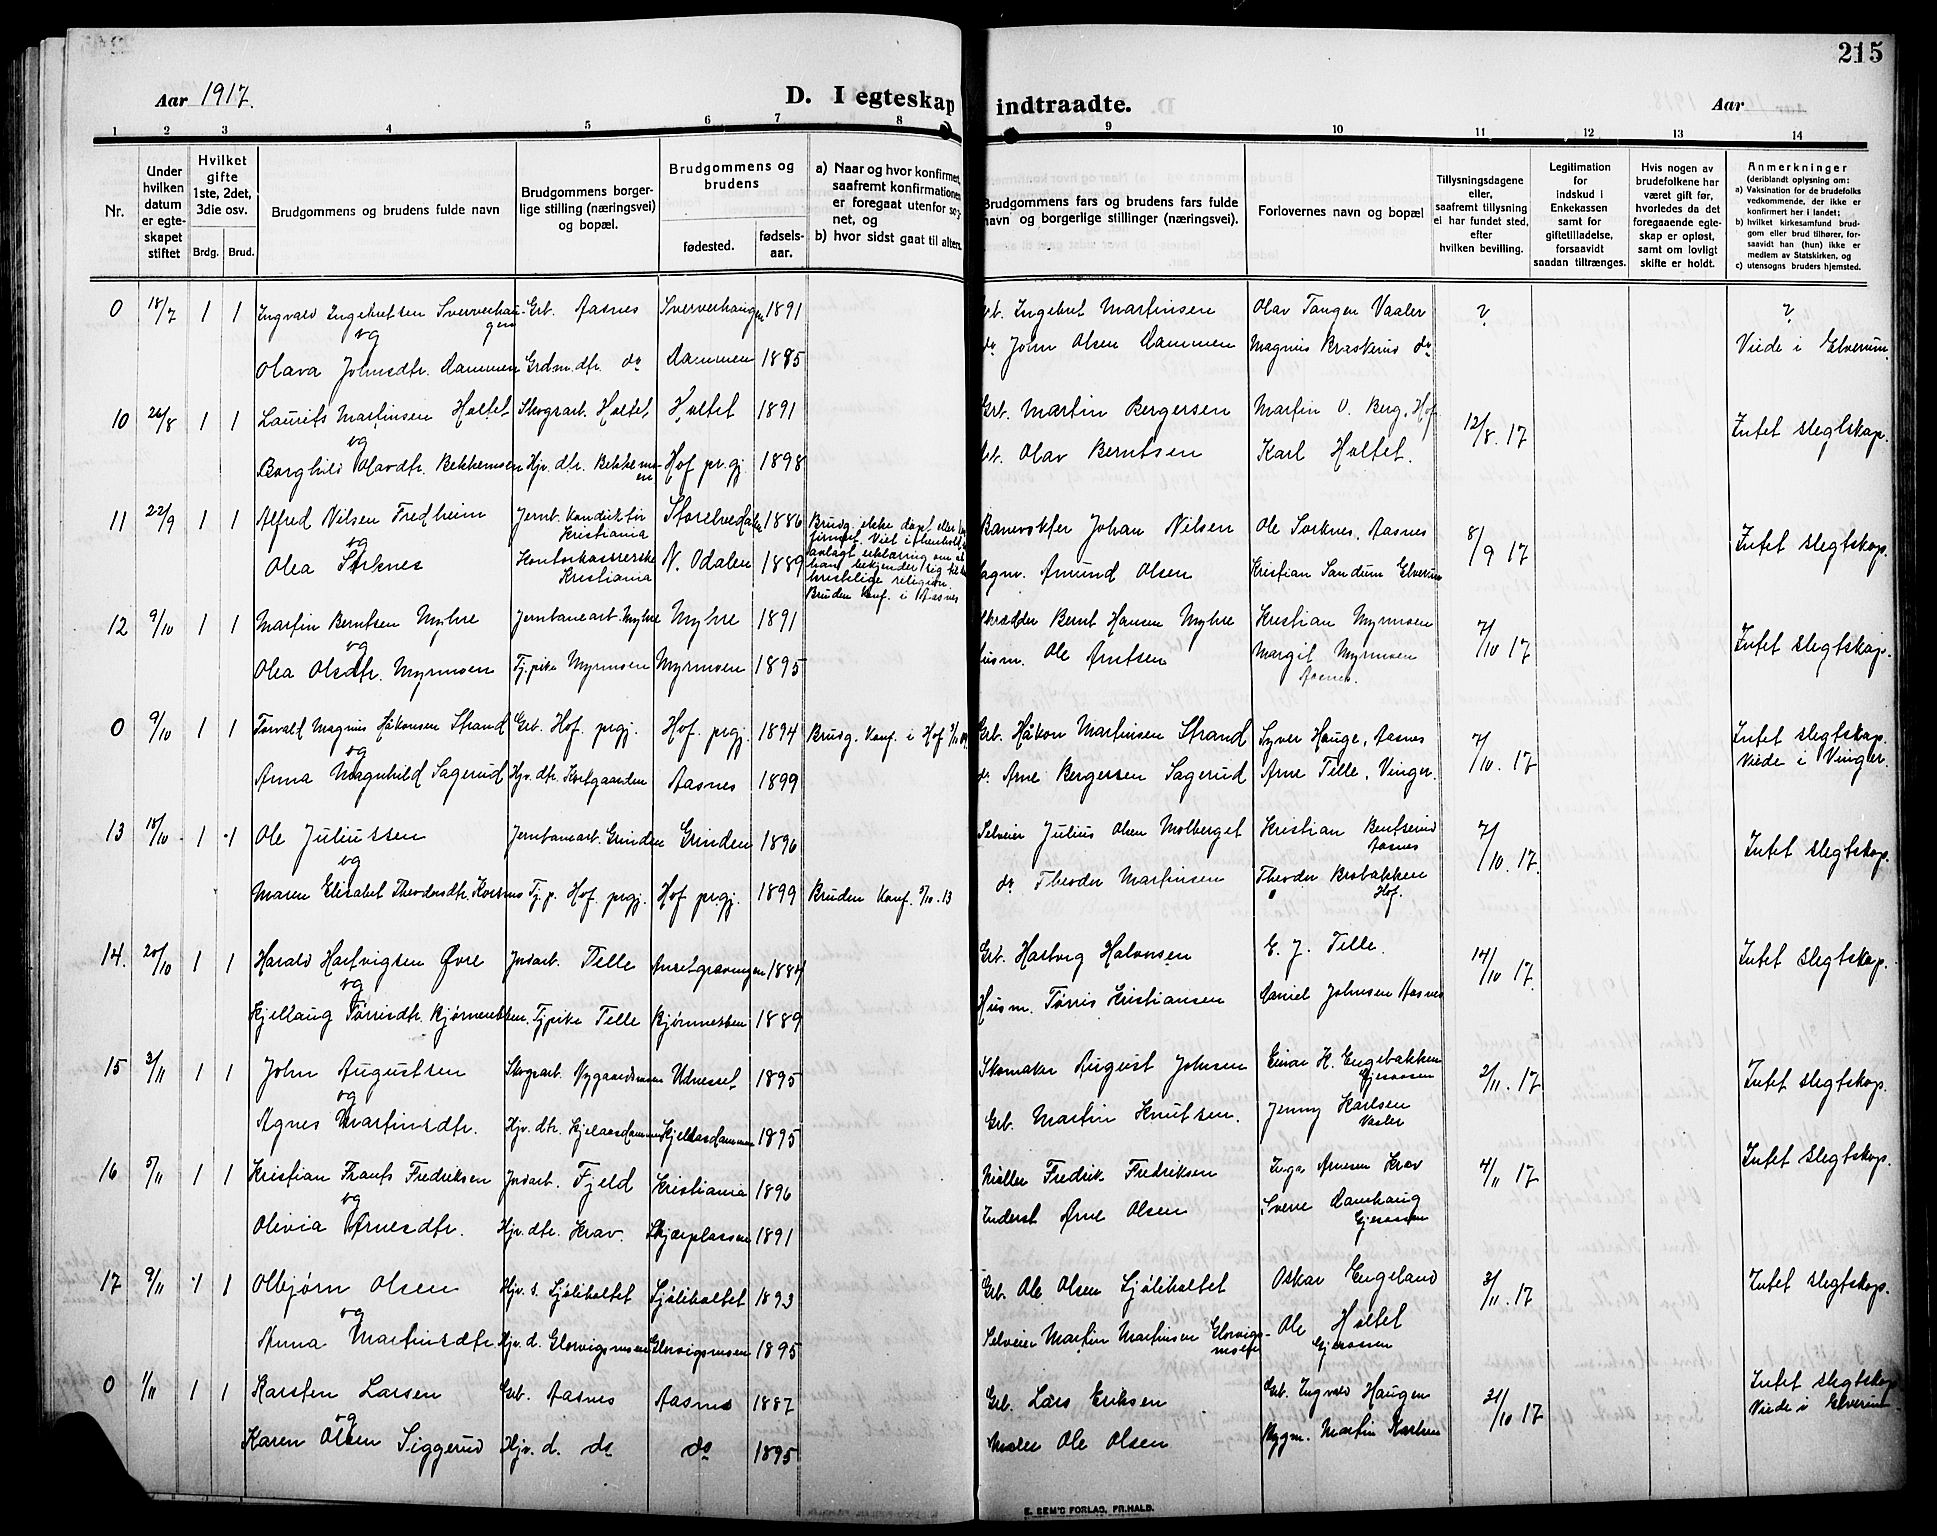 215
Aar 1917.
D. I egteskap indtraadte.
Aar
1 2 3 4 5 6 7 8 9 10 11 12 13 14
Nr.
Under hvilken datum er egteskapet stiftet
Hvilket gifte 1ste, 2det, 3die osv.
Brdg. Brud.
Brudgommens og brudens fulde navn
Brudgommens borgerlige stilling (næringsvei) og bopæl.
Brudgommens og brudens
fødested. fødselsaar.
a) Naar og hvor konfirmert, saafremt konfirmationen er foregaat utenfor sognet, og
b) hvor sidst gaat til alters.
Brudgommens fars og brudens fars fulde navn og borgerlige stillinger (næringsvei).
Forlovernes navn og bopæl
Tillysningsdagene eller, saafremt tillysning ei har fundet sted, efter hvilken bevilling.
Legitimation for indskud i Enkekassen samt for giftetilladelse, forsaavidt saadan tiltrænges.
Hvis nogen av brudefolkene har været gift før, hvorledes da det foregaaende egteskap er opløst, samt om lovligt skifte er holdt.
Anmerkninger (deriblandt oplysning om:
a) Vaksination for de brudefolks vedkommende, der ikke er konfirmert her i landet;
b) hvilket kirkesamfund brudgom eller brud tilhører, forsaavidt han (hun) ikke er medlem av Statskirken, og
c) utensogns bruders hjemsted.
0 18/7 1 1 Ingvald Ingebretsen Sververhaugen Grb. Aasnes Sververhaugen 1891 Ingebret Martinsen Olav Tangen Vaaler ? ?
og
Olava Johnsdtr. Dammen Grdm.dtr. do Dammen 1885 do John Olsen Dammen Magnus Braskerud do Viede i Elverum
10 26/8 1 1 Laurits Martinsen Holtet Skogsarb. Holtet Holtet 1891 Grb. Martin Bergersen Martin O. Berg, Hof 12/8. 17 Intet slegtskap.
og
Borghild Olavdtr. Bekkemoen Hjv. dtr. Bekkemoen Hof pr.gj. 1898 Olav Berntsen Karl Holtet.
11 22/9 1 1 Alfred Nilsen Fredheim Jernb. konduktør Kristiania Storelvedalen 1886 Brudg. ikke døpt eller Banevokter Johan Nilsen Ole Sorknes, Aasnes 8/9 17 Intet slegtskap.
og
Olea Sorknes Kontorkassererske Kristiania N. Odalen 1889 avlagt erklæring om at han bekjender sig til kristelige religion. Bruden konf. i Aasnes Amund Olsen Kristian Sandum Elverum
12 9/10 1 1 Martin Berntsen Myhre Jernbanearb. Myhre Myhre 1891 Skrædder Bernt Hansen Myhre Kristian Myrmoen 7/10 17 Intet slegtskap.
og
Olea Olsdtr. Myrmoen Tj.pike Myrmoen Myrmoen 1895 Husm. Ole Arntsen Margit Myrmoen Aasnes.
0 9/10 1 1 Torvald Magnus Håkonsen Strand Grb. Hof. prgj. Hof. prgj. 1894 Brudg. konf. i Hof Grb. Håkon Martinsen Strand Syver Hauge, Aasnes 7/10. 17 Intet slegtskap.
og Viede i Vinger.
Anna Magnhild Sagerud Hjv. dtr. Kortgaarden Aasnes 1899 do. Arne Bergersen Sagerud Arne Telle, Vinger.
13 18/10 1 1 Ole Juliussen Jernbanearb. Grinden Grinden 1896 Selveier Julius Olsen Molberget Kristian Bentserud Aasnes 7/10. 17. Intet slegtskap.
og
Maren Elisabet Theodorsdtr. Korsmo Tj. p. Hof. prgj. Hof prgj. 1899 Bruden konf. 5/10. 13 do Theodor Martinsen Theodor Brobakken Hof.
14. 20/10 1 1 Harald Hartvigsen Øvre Jrdarb. Telle Ansetgravningen 1884 Grb. Hartvig Halvorsen E. J. Telle. 14/10 17. Intet slegtskap.
og
Kjellaug Tørrisdtr. Bjørneretsen. Tjpike Telle Bjørnessen 1889 Husm. Tørris Kristiansen Daniel Johnsen Aasnes
15 3/11 1 1 John Augustsen Skogsarb. Nygaardsmoen Udnesset 1895 Skomaker August Johnsen Einar H. Engebakken Gjesaasen 2/11. 17 Intet slegtskap.
og
Agnes Martinsdtr. Hjv. dtr. Kjelaasdammen Kjelaasdammen 1895 Grb. Martin Knutsen. Jenny Karlsen Vaaler
16 5/11 1 1 Kristian Frants Fredriksen Jrdarb. Fjeld Kristiania 1896 Møller Fredrik Fredriksen Inga Arnesen Krav 4/11 17 Intet slegtskap.
og
Olivia Arnesdtr. Hjv. dtr. Krav. Skjærplassen 1891 Inderst Arne Olsen Sverre Damhaug Gjesaasen
17 9/11 1 1 Olbjørn Olsen Hjv. s. Sjøliholtet Sjøliholtet 1893 Grb. Ole Olsen Sjøliholtet Oskar Engeland 3/11. 17 Intet slegtskap.
og
Anna Martinsdtr. Hjv. d. Glorvigsmoen Glorvigsmoen 1895 Selveier Martin Martinsen Glorvigsmoen Ole Holtet Gjesaasen
0 1/11 1 1 Karsten Larsen Grb. Aasnes Aasnes 1887 Grb. Lars Eriksen Grb. Ingvald Haugen 21/10 17 Intet slegtskap
og Viede i Elverum
Karen Olsen Siggerud Hjv. d. do do 1895 Maler Ole Olsen Bygm. Martin Karlsen
E. SEM'S FORLAG, FR.HALD.